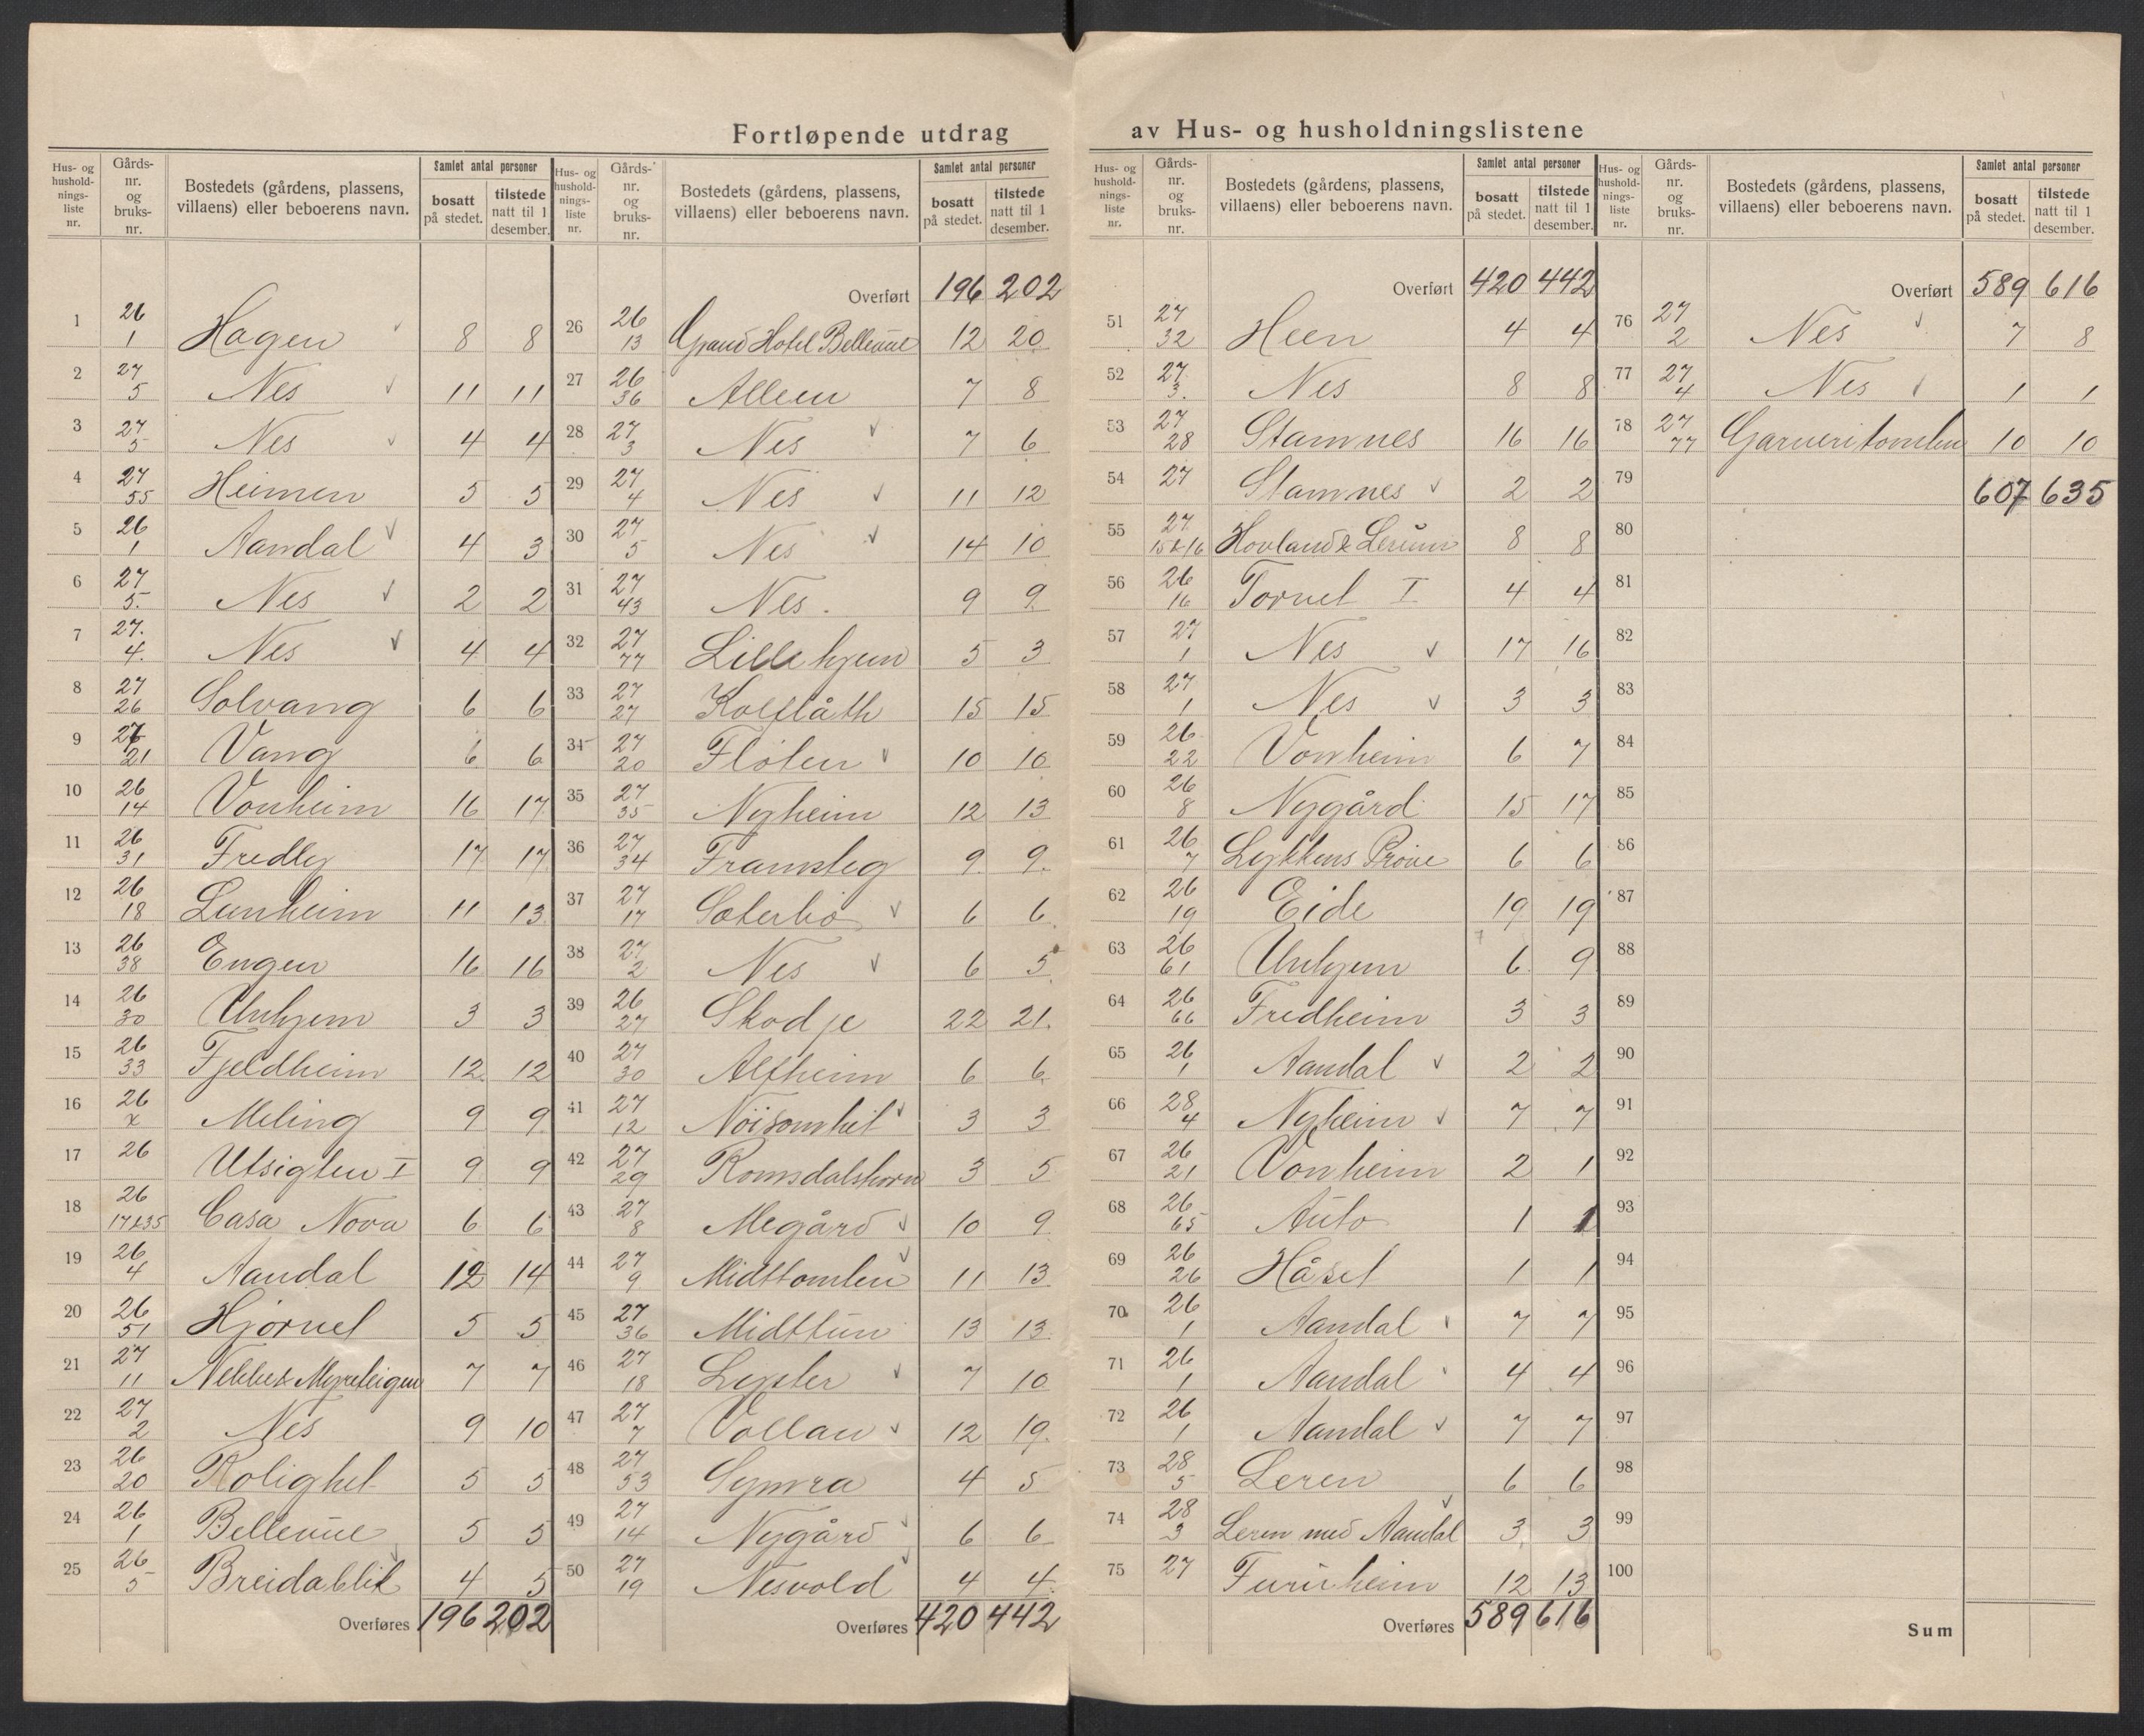 Fortløpende utdrag av Hus- og husholdningslistene
Hus- og husholdningsliste nr. | Gårds-nr. og bruks-nr. | Bostedets (gårdens, plassens, villaens) eller beboerens navn. | Samlet antal personer bosatt på stedet. | tilstede natt til 1 desember.
1 26/1 Hagen 8 8
2 27/5 Nes 11 11
3 27/5 Nes 4 4
4 27/55 Heimen 5 5
5 26/1 Aandal 4 3
6 27/5. Nes 2 2
7 27./4. Nes 4 4
8 27/26 Solvang 6 6
9 /21 Vang 6 6
10 26/14 Vonheim 16 17
11 26/31 Fredly 17 17
12 26/18 Lunheim 11 13
13 26/38 Engen 16 16
14 26/30 Unhjem 3 3
15 26/33 Fjeldheim 12 12
16 26/x Meling 9 9
17 26 Utsigten I 9 9
18 26/17&35 Casa Nova 6 6
19 26/4 Aandal 12 14
20 26/51 Hjørnet 5 5
21 27/11 7 7
22 27/2 Nes 9 10
23 26/20 Rolighet 5 5
24 26/1 Bellevue 5 5
25 26/5 Breidablik 4 5
Overføres 196 202
Hus- og husholdningsliste nr. | Gårds-nr. og bruks-nr. | Bostedets (gårdens, plassens, villaens) eller beboerens navn. | Samlet antal personer bosatt på stedet. | tilstede natt til 1 desember.
Overført 196 202
26 26/13 Grand Hotel Bellevue 12 20
27 26/36 Alleen 7 8
28 27/3 Nes 7 6
29 27/4 Nes 11 12
30 27/5 Nes 14 10
31 27/43 Nes. 9 9
32 27/77 Lillehjem 5 3
33 27/27 Kolflåth 15 15
34 27/20 Fløten 10 10
35 27/35 Nyheim 12 13
36 27/34 Framsteg 9. 9.
37 27/17 Sæterbø 6 6
38 27/2 Nes 6 5
39 26/27 Skodje 22 21.
40 27/30 Alfheim 6 6
41 27/12 Nöisomhet 3 3
42 27/29 Romsdalshorn 3 5
43 27/8 Megård 10 9
44 27/9 Midttomten 11 13
45 27/36 Midttun 13 13
46 27/18 Lyster 7 10
47 27/7 Vollan 12 19.
48 27/53 Symra 4 5
49 27/14 Nygård 6 6
50 27/19 Nesvold 4 4
Overføres 420 442
Hus- og husholdningsliste nr. | Gårds-nr. og bruks-nr. | Bostedets (gårdens, plassens, villaens) eller beboerens navn. | Samlet antal personer bosatt på stedet. | tilstede natt til 1 desember.
Overført 420 442
51 27/32 Heen 4 4
52 27/3. Nes 8 8
53 27/28 Stamnes 16 16
54 27 Stamnes 2 2
55 27/15&16 Hovland & Lerum 8 8
56 26/16 Torvet I 4 4
57 27/1 Nes 17 16
58 27/1 Nes 3 3
59 26/22 Vonheim 6 7
60 26/8 Nygård 15 17
61 26/7 Lykkens Prøve 6 6
62 26/19 Eide 19 19
63 26/61 Unhjem 6 9
64 26/66 Fredheim 3 3
65 26/1 Aandal 2 2
66 28/4 Nyheim 7 7
67 26/21 Vonheim 2 1
68 26/65 Auto 1 1
69 26/26 Håset 1 1
70 26/1 Aandal 7 7
71 26/1 Aandal 4 4
72 26/1 Aandal 7 7
73 28/5 Leren 6 6
74 28/3 Leren med Aandal 3 3
75 27 Furuheim 12 13
Overføres 589 616
Hus- og husholdningsliste nr. | Gårds-nr. og bruks-nr. | Bostedets (gårdens, plassens, villaens) eller beboerens navn. | Samlet antal personer bosatt på stedet. | tilstede natt til 1 desember.
Overført 589 616
76 27/2 Nes 7 8
77 27/4 Nes 1 1
78 27/77 Garveritomten 10 10
79 607 635
80
81
82
83
84
85
86
87
88
89
90
91
92
93
94
95
96
97
98
99
100
Sum